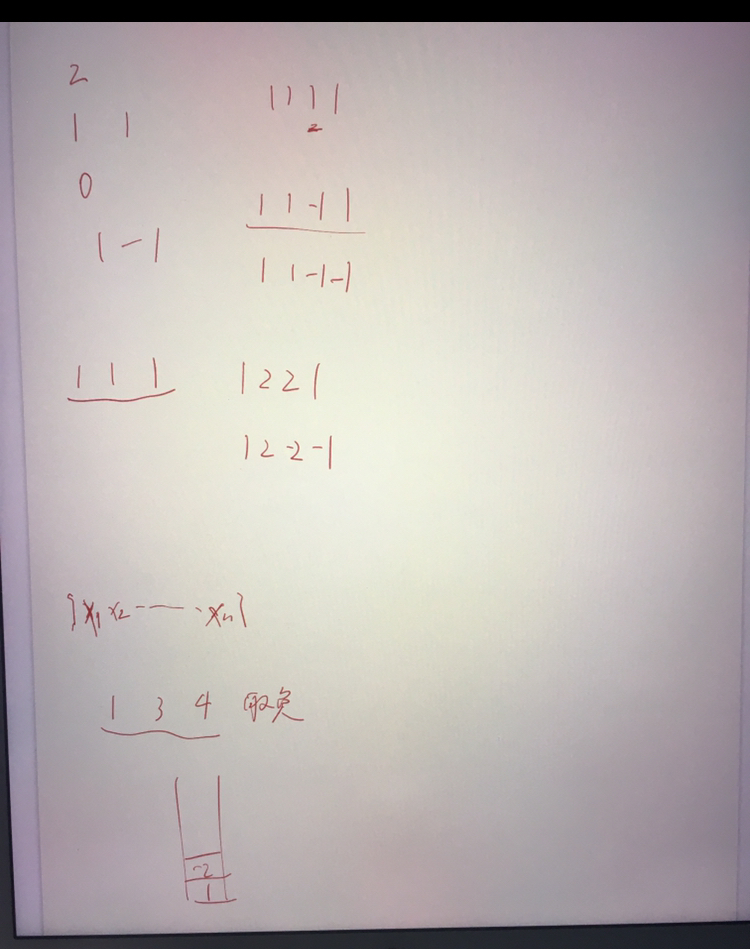 2
1 1 1 1 1 1
2
0
1 1 -1 1
1 -1
1 1 -1 -1
1 1 1 1 2 2 1
1 2 -2 -1
{x₁ x₂ ---- x_n}
1 3 4 取负
-2
1